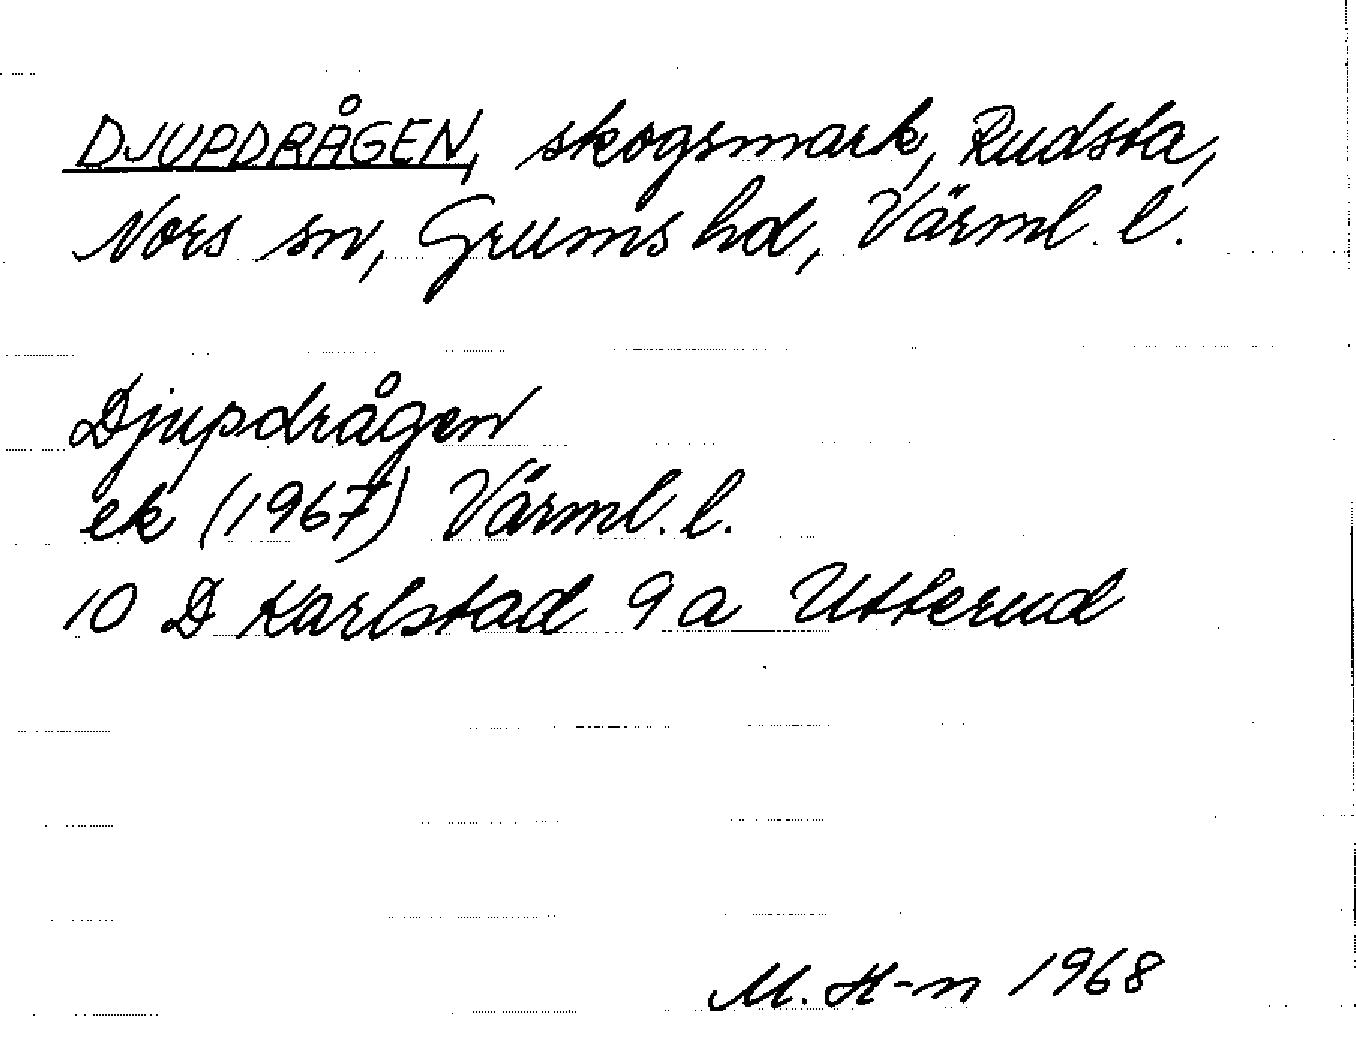 DJUPDRÅGEN, skogsmark, Rudsta,
Nors sn, Grums hd, Värml. l.
Djupdrågen
ek (1967) Värml. l.
10 D Karlstad 9 a Utterud
M. H-n 1968